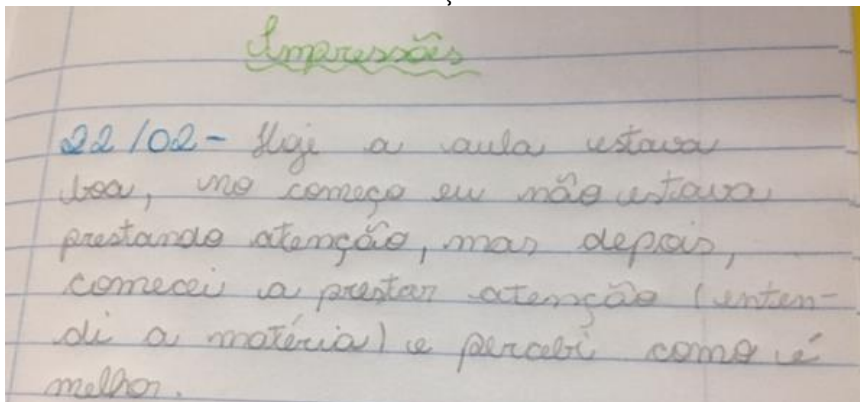 Impressões
22/02 - Hoje a aula estava
boa, no começo eu não estava
prestando atenção, mas depois,
comecei a prestar atenção (enten-
di a matéria) e percebi como é
melhor.